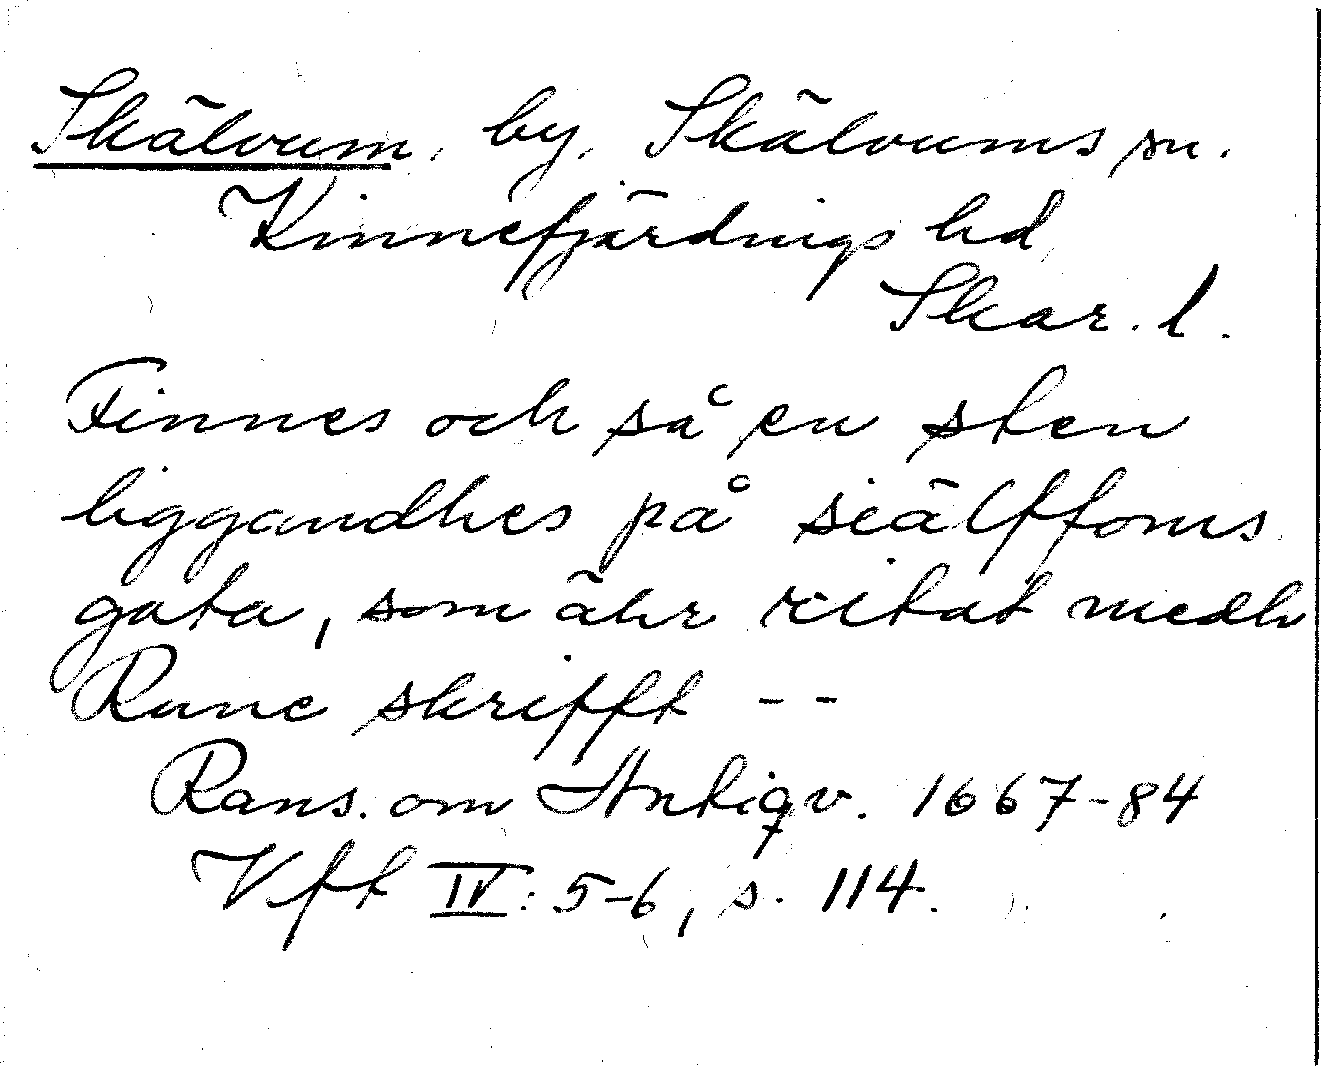 Skälvum, by, Skälvums sn.
Kinnefjärdings hd
Skar. l.
Finnes och så en sten
liggandhes på sciälffoms
gata, som ähr ritat medh
Rune skrifft --
Rans. om Antiqv. 1667-84
Vft IV: 5-6, s. 114.